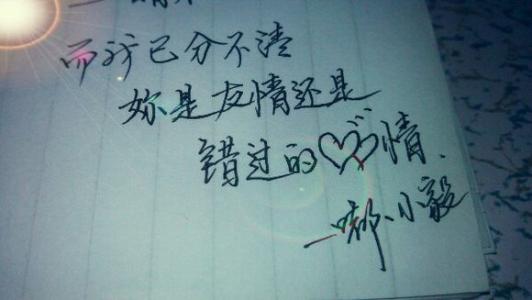 而我已分不清
妳是友情还是
错过的♡♡情.
小毅